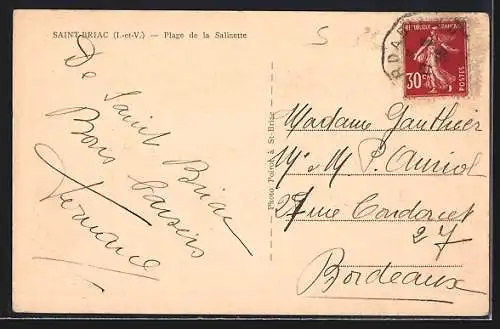 SAINT-BRIAC (I.-et-V.) — Plage de la Salinette
De Saint Briac
Bons baisers
Fernand
Photo Poirot à St-Briac
5
REPUBLIQUE FRANÇAISE
30c
POSTES
Madame Gauthier
Mr & M P. Auriol
27 rue Condorcet
27
Bordeaux